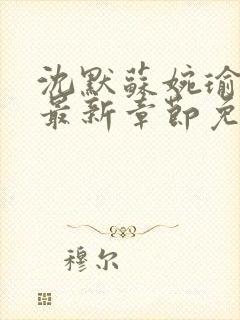 沈默苏婉瑜
最新章节免
穆尔